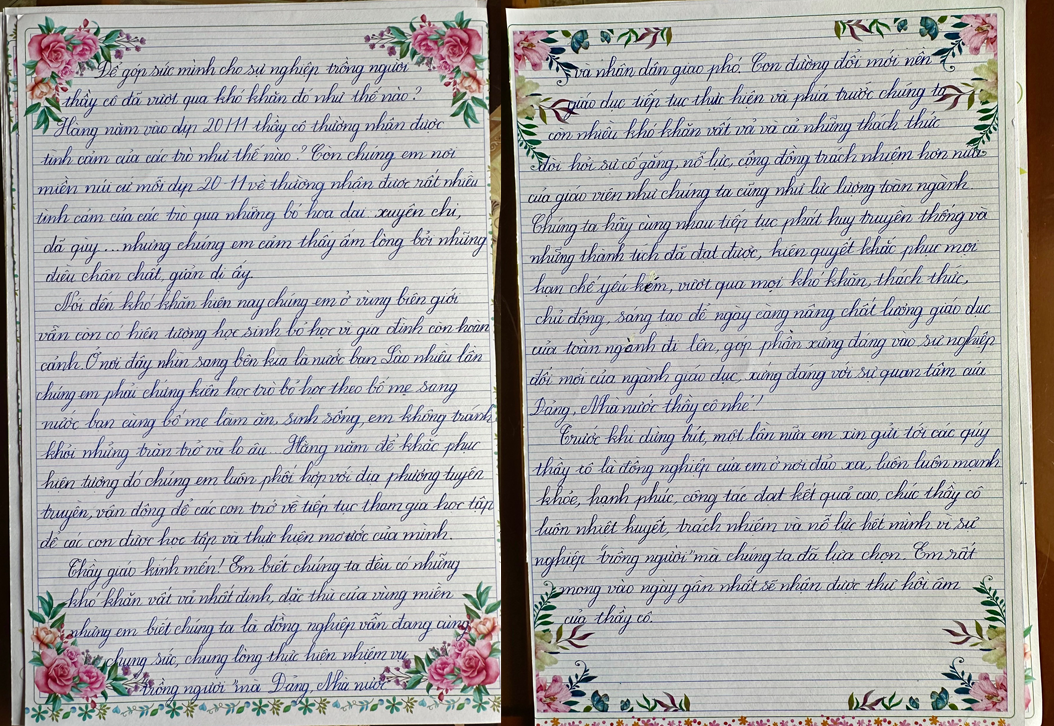 Để góp sức mình cho sự nghiệp trồng người
thầy cô đã vượt qua khó khăn đó như thế nào?
Hàng năm vào dịp 20/11 thầy cô thường nhận được
tình cảm của các trò như thế nào? Còn chúng em nơi
miền núi cứ mỗi dịp 20-11 về thường nhận được rất nhiều
tình cảm của các trò qua những bó hoa dại xuyến chi,
dã quỳ... nhưng chúng em cảm thấy ấm lòng bởi những
điều chân chất, giản dị ấy.
Nói đến khó khăn hiện nay chúng em ở vùng biên giới
vẫn còn có hiện tượng học sinh bỏ học vì gia đình còn hoàn
cảnh. Ở nơi đây nhìn sang bên kia là nước bạn Lào nhiều lần
chúng em phải chứng kiến học trò bỏ học theo bố mẹ sang
nước bạn cùng bố mẹ làm ăn, sinh sống, em không tránh
khỏi những trăn trở và lo âu... Hàng năm để khắc phục
hiện tượng đó chúng em luôn phối hợp với địa phương tuyên
truyền, vận động để các con trở về tiếp tục tham gia học tập
để các con được học tập và thực hiện mơ ước của mình.
Thầy giáo kính mến! Em biết chúng ta đều có những
khó khăn vất vả nhất định, đặc thù của vùng miền
nhưng em biết chúng ta là đồng nghiệp vẫn đang cùng
chung sức, chung lòng thực hiện nhiệm vụ
"trồng người" mà Đảng, Nhà nước
và nhân dân giao phó. Con đường đổi mới nền
giáo dục tiếp tục thực hiện và phía trước chúng ta
còn nhiều khó khăn vất vả và cả những thách thức
đòi hỏi sự cố gắng, nỗ lực, cộng đồng trách nhiệm hơn nữa
của giáo viên như chúng ta cũng như lực lượng toàn ngành.
Chúng ta hãy cùng nhau tiếp tục phát huy truyền thống và
những thành tích đã đạt được, kiên quyết khắc phục mọi
hạn chế yếu kém, vượt qua mọi khó khăn, thách thức,
chủ động, sáng tạo để ngày càng nâng chất lượng giáo dục
của toàn ngành đi lên, góp phần xứng đáng vào sự nghiệp
đổi mới của ngành giáo dục, xứng đáng với sự quan tâm của
Đảng, Nhà nước thầy cô nhé!
Trước khi dừng bút, một lần nữa em xin gửi tới các quý
thầy cô là đồng nghiệp của em ở nơi đảo xa, luôn luôn mạnh
khỏe, hạnh phúc, công tác đạt kết quả cao, chúc thầy cô
luôn nhiệt huyết, trách nhiệm và nỗ lực hết mình vì sự
nghiệp "trồng người" mà chúng ta đã lựa chọn. Em rất
mong vào ngày gần nhất sẽ nhận được thư hồi âm
của thầy cô.